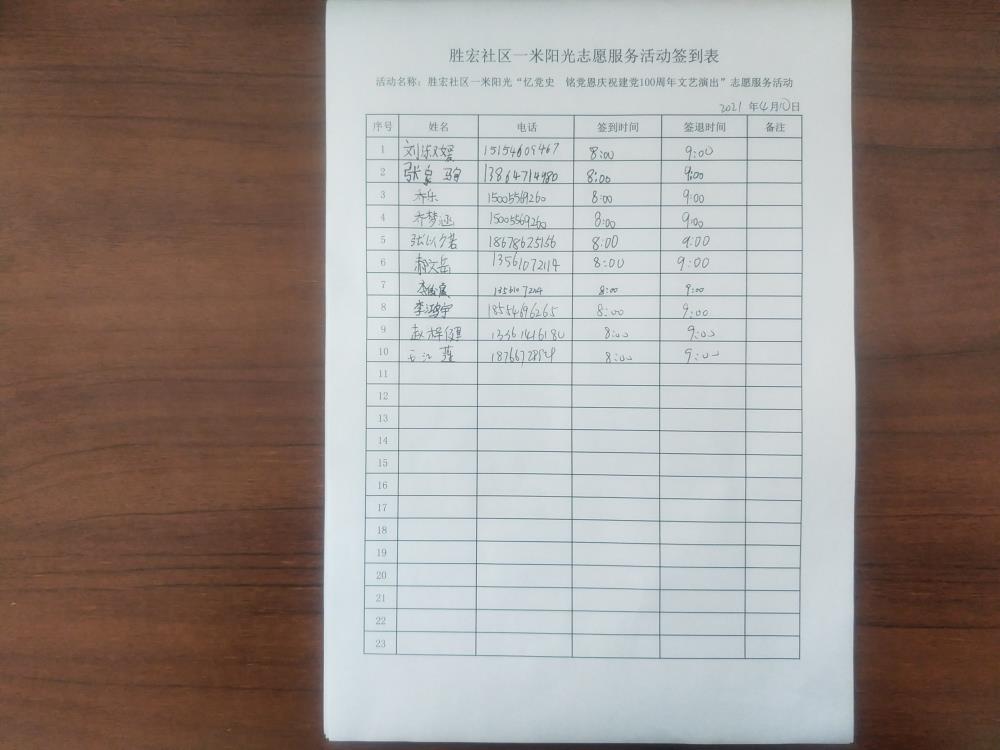 胜宏社区一米阳光志愿服务活动签到表
活动名称：胜宏社区一米阳光“忆党史 铭党恩庆祝建党100周年文艺演出”志愿服务活动
2021 年4月10日
序号 姓名 电话 签到时间 签退时间 备注
1 刘 媛 15154609467 8:00 9:00
2 张 13864714980 8:00 9:00
3 乔乐 15005569260 8:00 9:00
4 乔梦涵 15005569260 8:00 9:00
5 张以 若 18678625156 8:00 9:00
6 郝文岳 13561072114 8:00 9:00
7 13561072114 8:00 9:00
8 李鸿宇 18554696265 8:00 9:00
9 赵梓 13361416180 8:00 9:00
10 莲 8:00 9:00
11
12
13
14
15
16
17
18
19
20
21
22
23